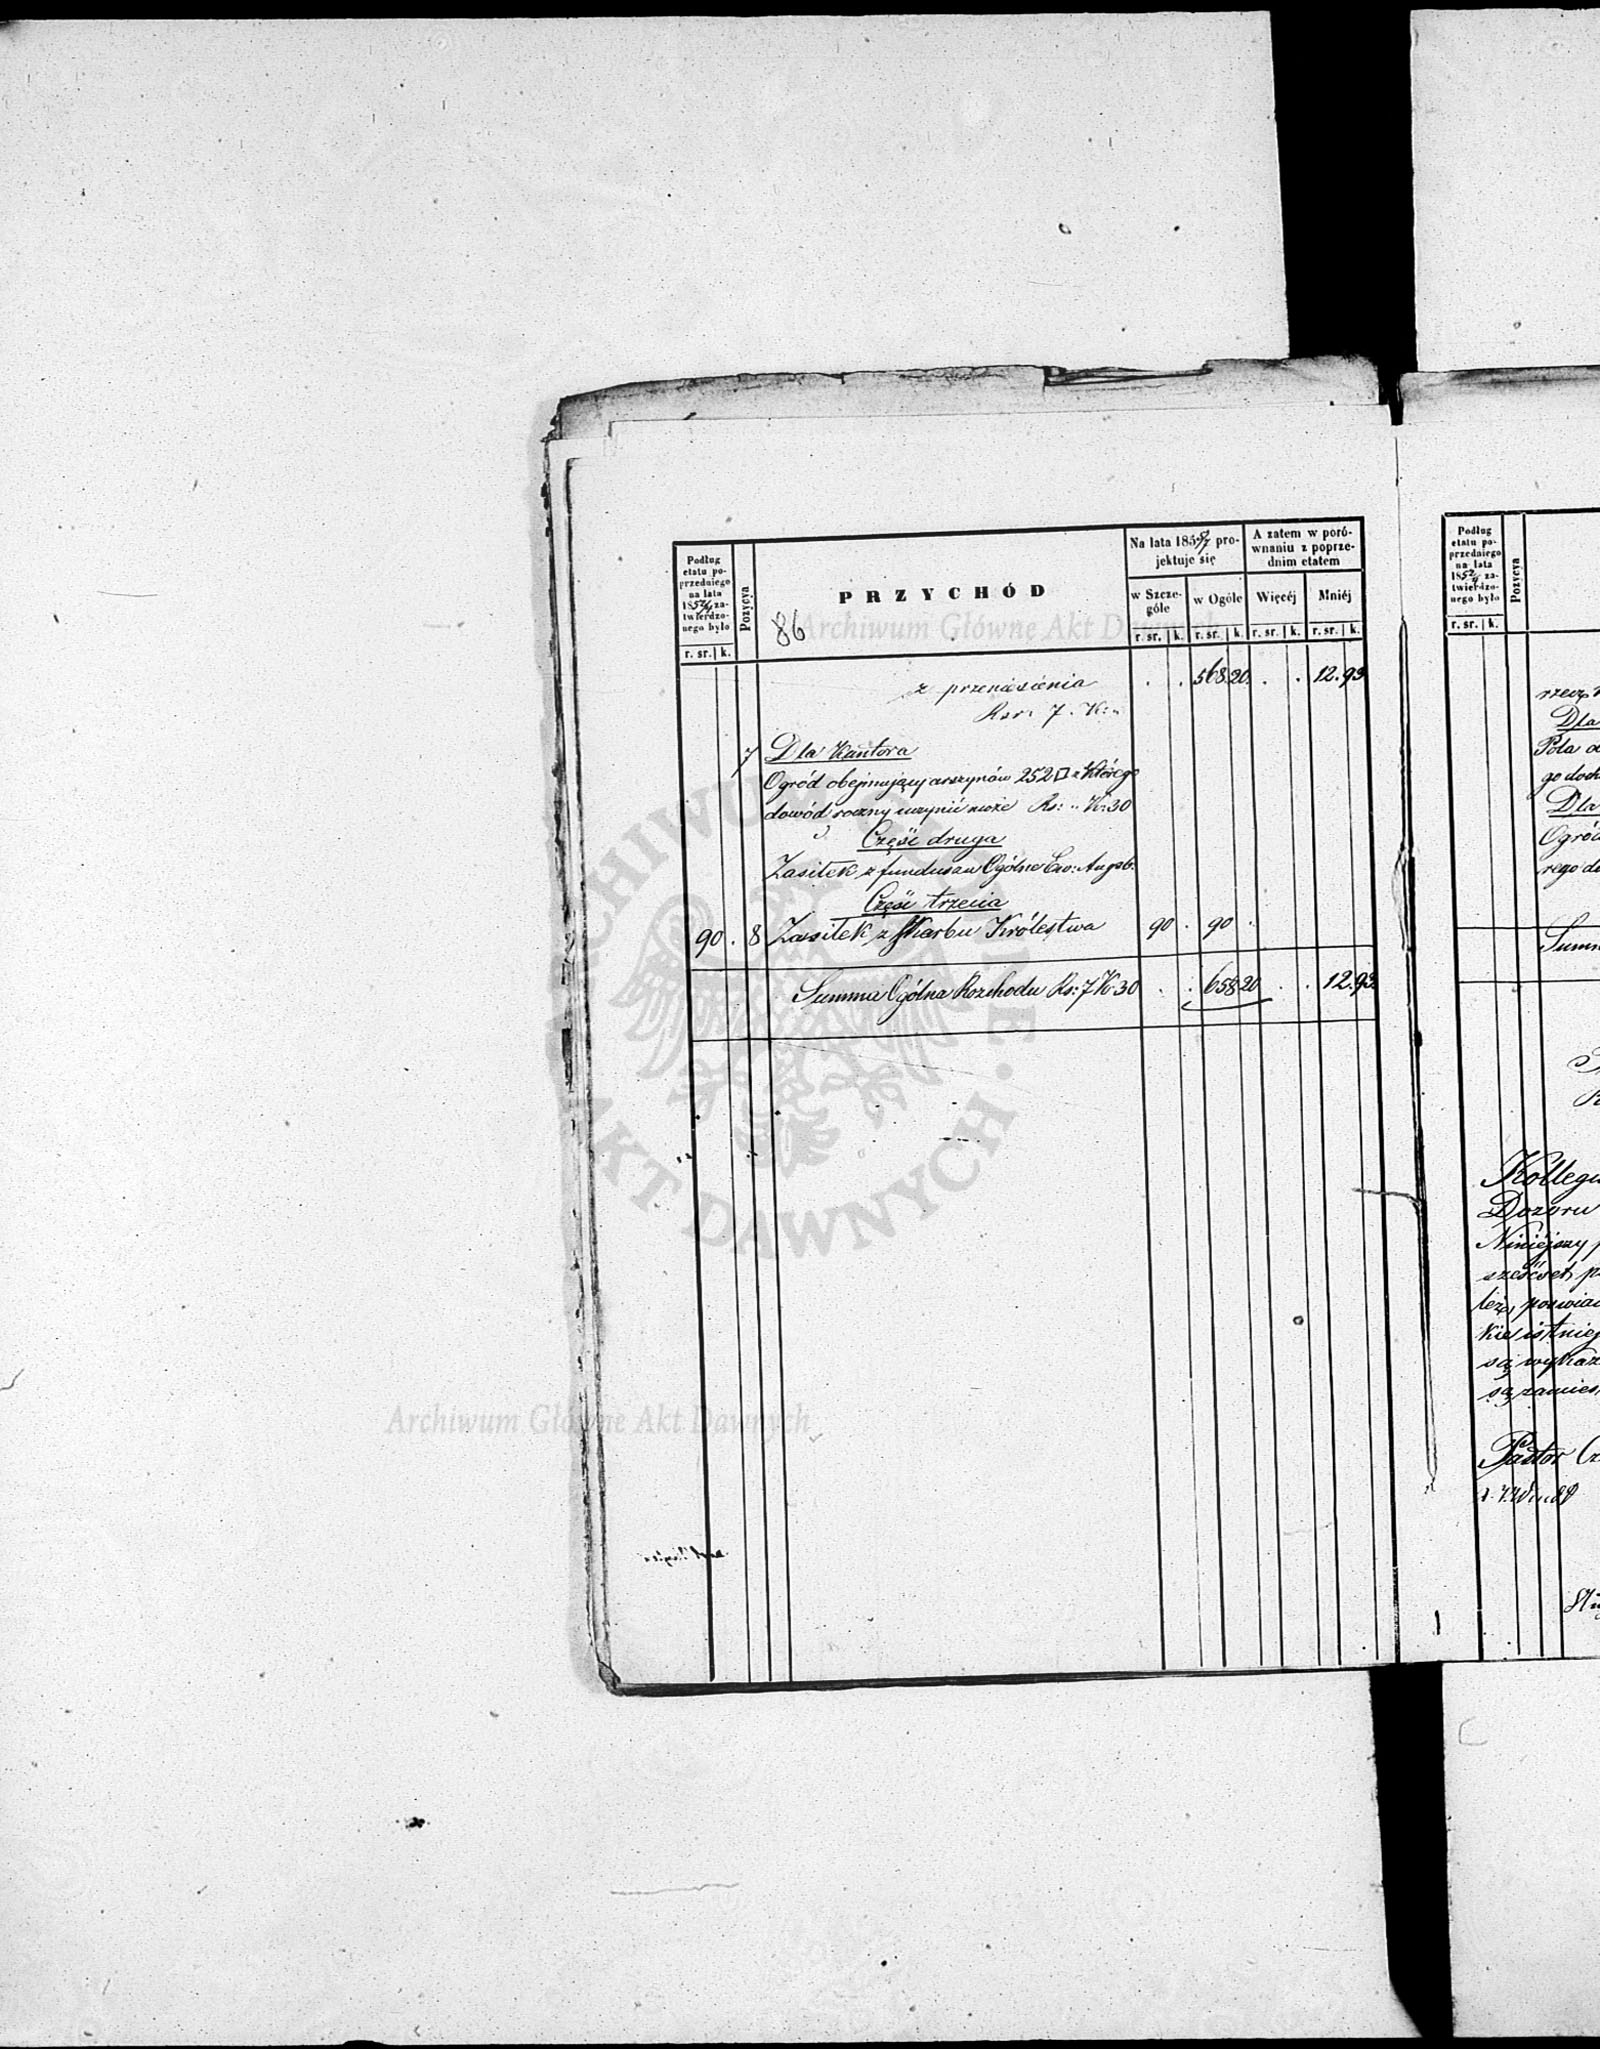 Podług
etatu po-
przedniego
na lata
1852/4 za-
twierdzo-
nego było
r. sr. k.
Pozycya
PRZYCHÓD
86
Na lata 1855/7 pro-
jektuje się
w Szcze-
góle
w Ogóle
r. sr. k. r. sr. k.
A zatem w poró-
wnaniu z poprze-
dnim etatem
Więcéj Mniéj
r. sr. k. r. sr. k.
z przeniesienia . . 568.20. . . 12.93
Rsr: 7. K: "
7 Dla Kantora
Ogród obejmujący arszynów 252 □ z którego
dowód roczny uczynić może Rs: " K: 30
Część druga
Zasiłek z funduszu Ogólno Ew: Augsb:
Część trzecia
90 . 8 Zasiłek z Skarbu Królestwa 90 . 90 .
Summa Ogólna Rozchodu Rs: 7 K 30 . . 658 20 . . 12.93
Archiwum Główne Akt Dawnych
ARCHIWUM GŁÓWNE AKT DAWNYCH
Archiwum Główne Akt Dawnych
Podług
etatu po-
przedniego
na lata
1852/4 za-
twierdzo-
nego było
r. sr. k.
Pozycya
Dla
Pola
go doch
Dla
Ogród
rego do
Summ
Kollegi
Dozoru
Niniejszy p
sześćset
kie istniej
są wykaz
są zamies
Pastor